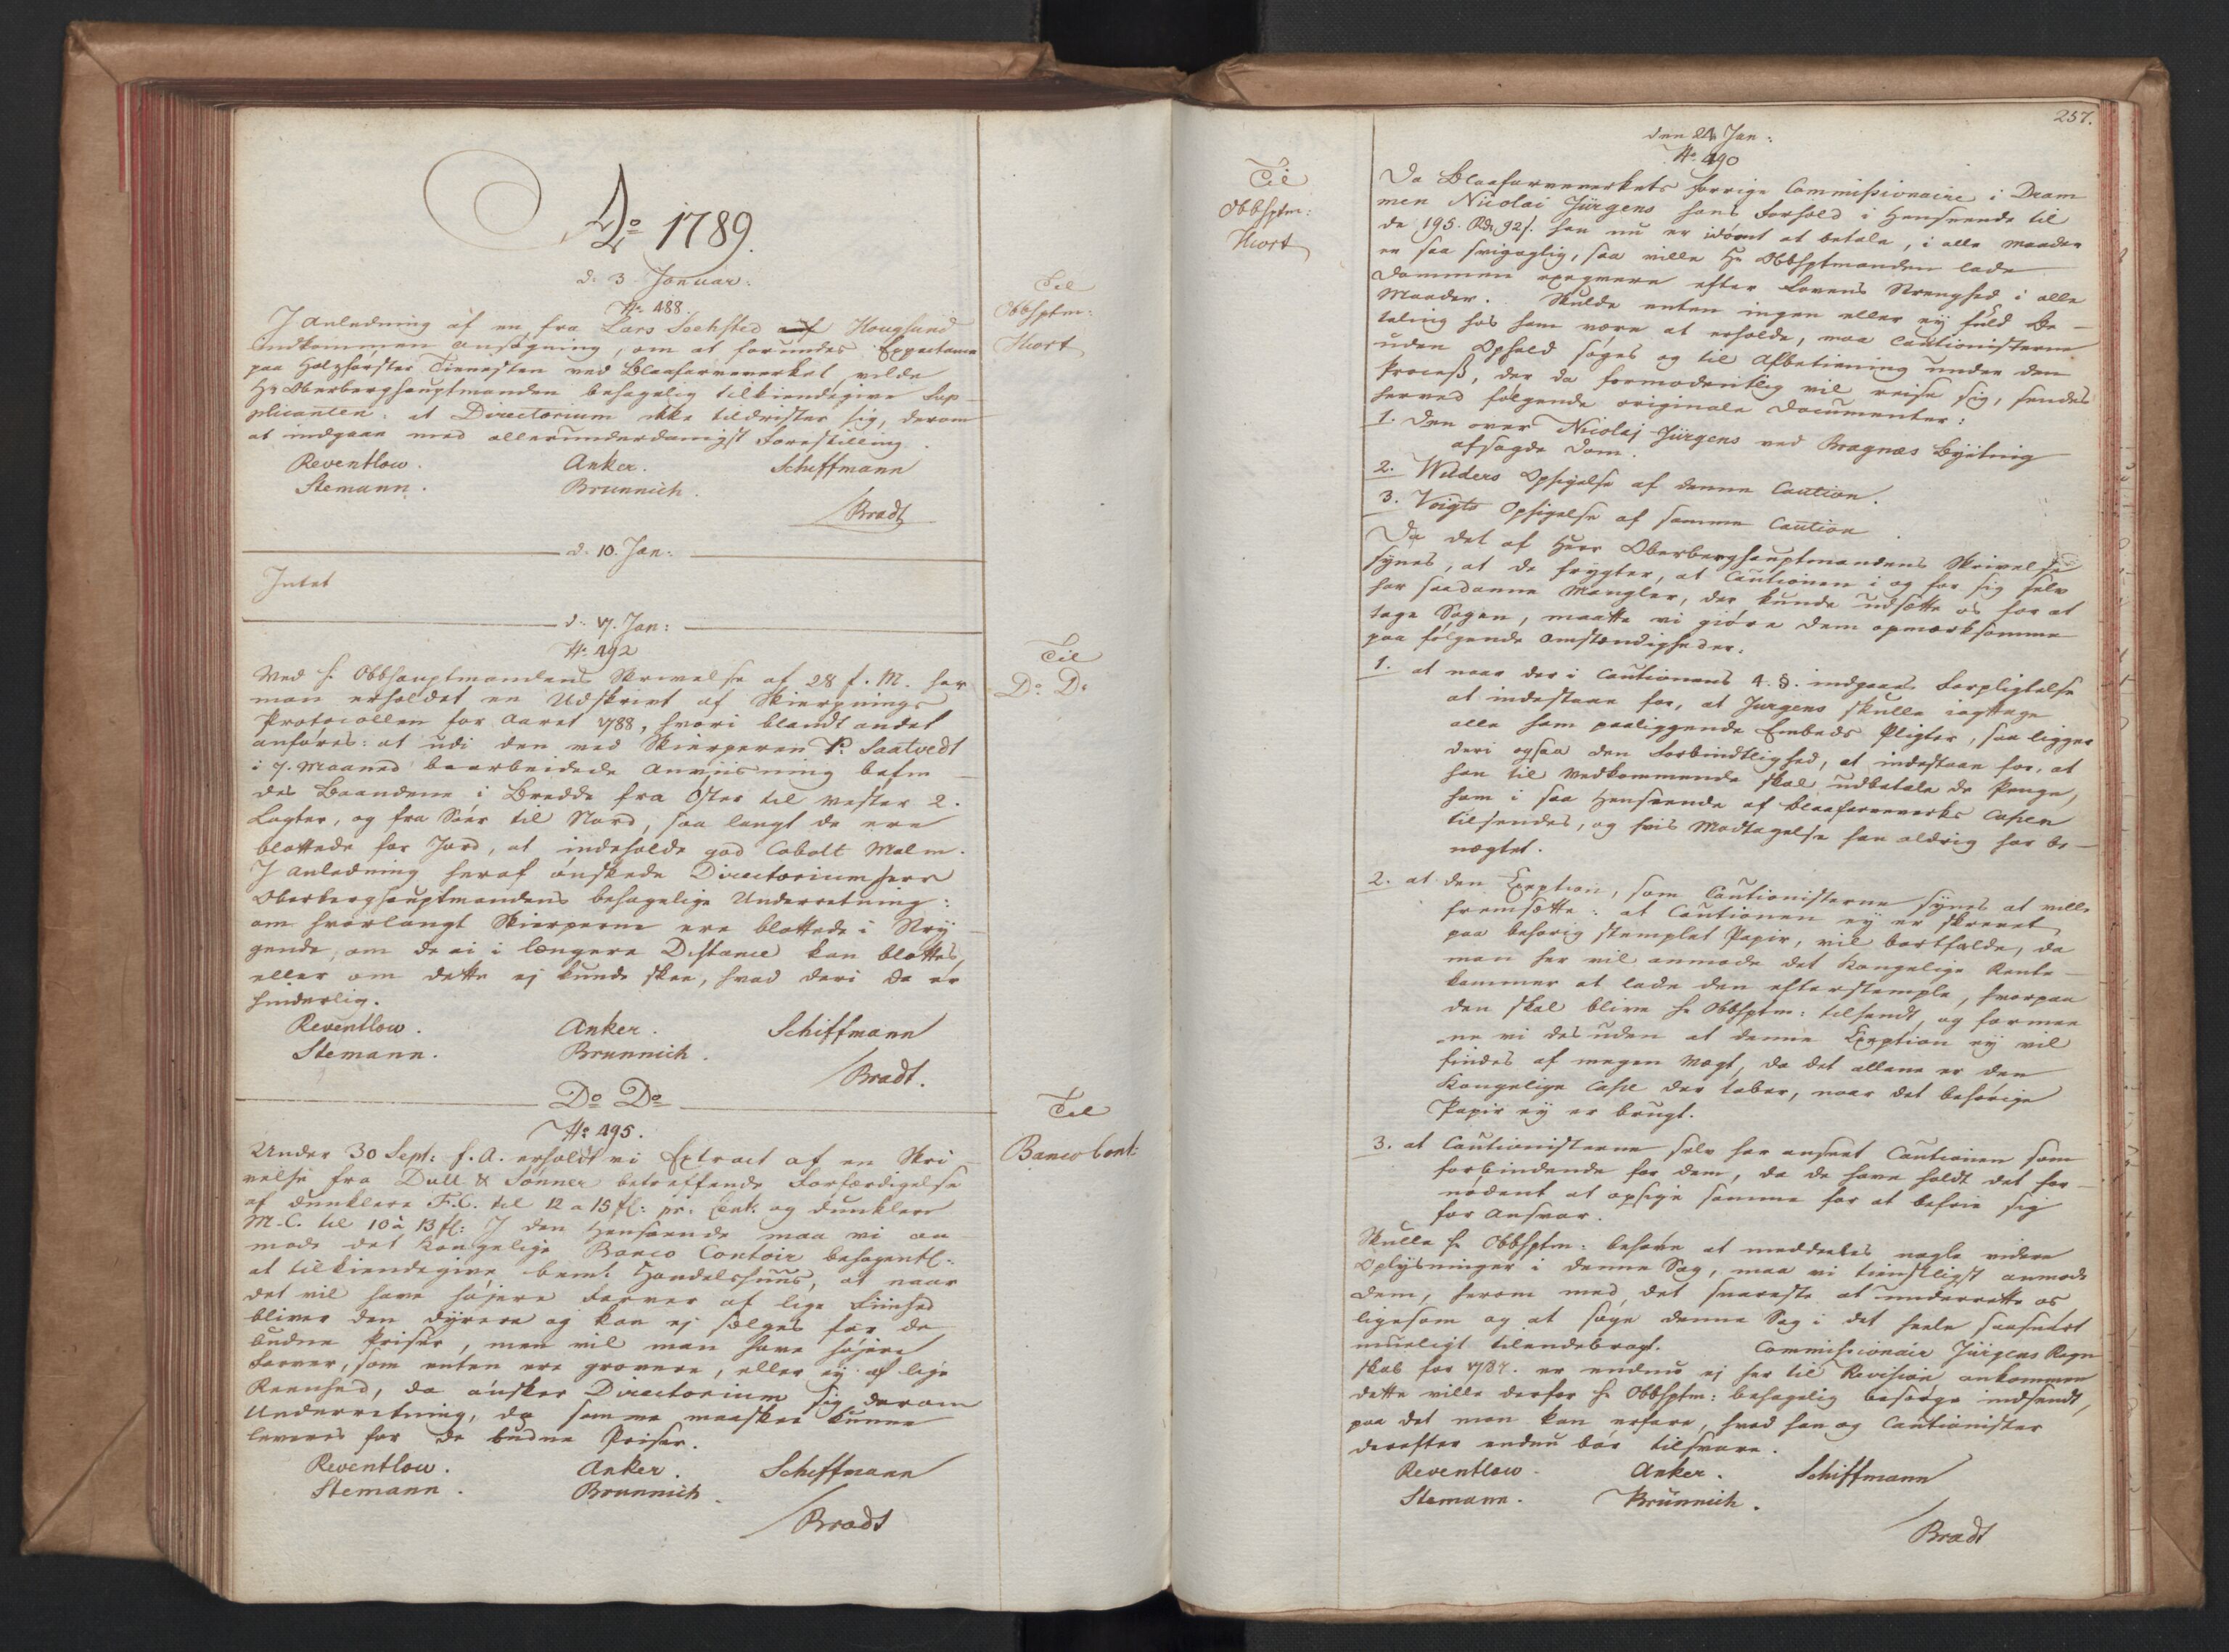 Aº 1789.
d. 3 Januar.
Nº 488.
Til
Obbhptm:
Hiort
I Anledning af en fra Lars Sechsted auf Hougsund
indkommen Ansøgning, om at forundes Expectance
paa Holzførster Tienesten ved Blaafarveverket vilde
Hr Oberberghauptmanden behagelig tilkiendegive Sup-
plicanten: at Directorium ikke tildrister sig, derom
at indgaae med allerunderdanigst Forestilling.
Reventlow. Anker. Schiffmann
Stemann. Brunnich.
Bradt
d. 10. Jan:
Intet
d. 17. Jan:
Nº 492
Til
Dº Dº
Med H. Obbhauptmandens Skrivelse af 28 f. M. har
man erholdet en Udskrivt af Skierpnings
Protocollen for Aaret 1788, hvori blandt andet
anføres: at udi den ved Skierperen P. Saatvedt
i 7. Maaned bearbeidede Anviisning befin-
des Baandene i Bredde fra Øster til Vester 2.
Lagter, og fra Sør til Nord, saa langt de ere
blottede for Jord, at indeholde god Cobolt Malm.
I Anledning heraf ønskede Directorium Herr
Oberberghauptmandens behagelige Underretning:
om hvorlangt Skierpene ere blottede i Stry-
gende, om de ei i længere Distance kan blottes,
eller om dette ej kunde skee, hvad deri da er
hinderlig.
Reventlow. Anker. Schiffmann
Stemann. Brunnich.
Bradt.
Dº Dº
Nº 495.
Til
Banco Cont:
Under 30 Sept: f. A. erholdt vi Extract af en Skri-
velse fra Dull & Sønner betreffende Forfærdigelse
af dunklere F.C. til 12 a 15 fl: pr. Cent. og dunklere
M.C. til 10 à 13 fl: I den Henseende maa vi an-
mode det Kongelige Banco Contoir behagentl:
at tilkiendegive bemt Handelshuus, at naar
det vil have højere Farver af lige Fiinhed
bliver den dyrere og kan ej sælges for de
budne Priser, men vil man have højere
Farver, som enten ere grovere, eller ej af lige
Reenhed, da ønsker Directorium sig derom
Underretning, da samme maaskee kunne
leveres for de budne Priser.
Reventlow. Anker. Schiffmann
Stemann. Brunnich.
Bradt
257.
den 24 Jan:
Nº 490
Til
Obbhptm:
Hiort
Da Blaafarveverkets forrige Commissionaire i Dram-
men Nicolai Jürgens hans Forhold i Henseende til
de 195. Rd 92 s. han nu er idømt at betale, i alle Maader
er saa svigagtig, saa ville Hr Obbhptmanden lade
Dommen exeqvere efter Lovens Strenghed i alle
Maader. Skulde enten ingen eller ej fuld Be-
taling hos ham være at erholde, maa Cautionisterne
uden Ophold søges og til Afbetiening under den
Process, der da formodentlig vil reise sig, sendes
herved følgende originale Documenter:
1. Den over Nicolaj Jürgens ved Bragnæs Byeting
afsagde Dom.
2. Wilders Opsigelse af denne Caution.
3. Voigts Opsigelse af samme Caution.
Da det af Herr Oberberghauptmandens Skrivelse
synes, at de frygter, at Cautionen i og for sig selv
har saadanne Mangler, der kunde udsætte os for at
tage Sagen, maatte vi giøre Dem opmærksomme
paa følgende Omstændigheder.
1. at naar der i Cautionens 4. §. indgaaes Forpligtelse
at indestaae for, at Jürgens skulle iagttage
alle ham paaliggende Embeds Pligter, saa ligger
deri ogsaa den Forbindtlighed, at indestaae for, at
han til Vedkommende skal udbetale de Penge,
ham i saa Henseende af Blaafarveverks Cassen
tilsendes, og hvis Modtagelse han aldrig har be-
nægtet.
2. at den Exeption, som Cautionisterne synes at ville
fremsætte: at Cautionen ej er skrevet
paa behørig stemplet Papir, vil bortfalde, da
man her vil anmode det Kongelige Rente-
kammer at lade den efterstemple, hvorpaa
den skal blive Hr Obbhptm: tilsendt, og formee-
ne vi desuden at denne Exeption ej vil
findes af megen Vægt, da det allene er den
Kongelige Casse der taber, naar det behørige
Papir ej er brugt.
3. at Cautionisterne selv har anseet Cautionen som
forbindende for dem, da de have holdt det for
nødent at opsige samme for at befrie sig
for Ansvar.
Skulle Hr Obbhptm: behøve at meddeeles nogle videre
Oplysninger i denne Sag, maa vi tienstligst anmode
Dem, herom med det snareste at underrette os
ligesom og at søge denne Sag i det heele saasnart
mueligt tilendebragt. Commissionair Jürgens Regn-
skab for 1787. er endnu ej her til Revision ankommen
dette ville derfor Hr Obbhptm: behagelig besørge indsendt,
paa det man kan erfare, hvad han og Cautionister
derefter endnu bør tilsvare.
Reventlow. Anker. Schiffmann
Stemann. Brünnich.
Bradt